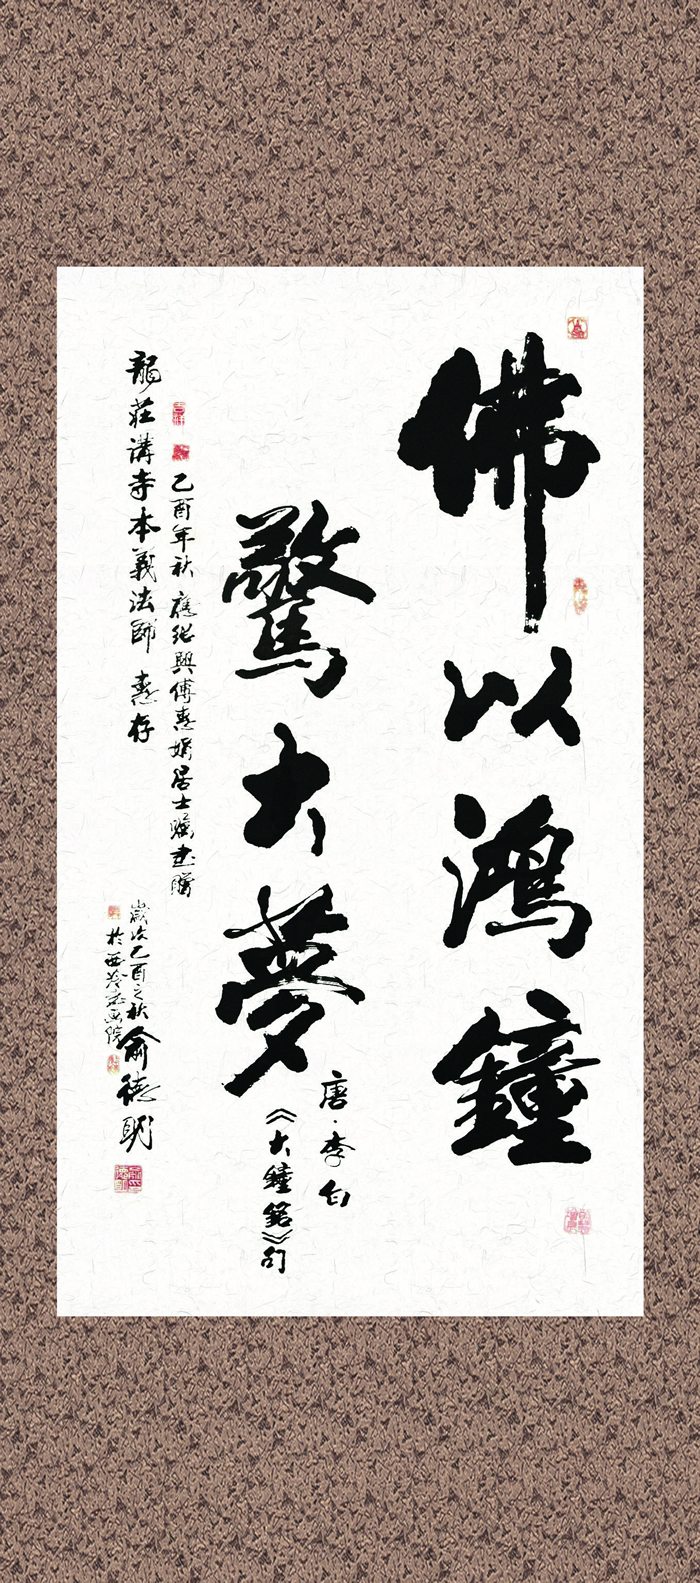 佛以鴻鐘
驚大夢
唐·李白
《大鐘銘》句
乙酉年秋應紹興傅惠娟居士囑書贈
龍莊講寺本義法師惠存
歲次乙酉之秋俞德明
於西泠書画院